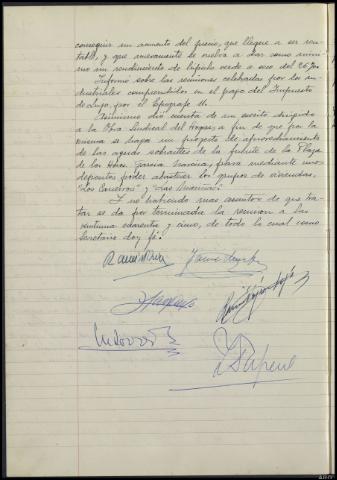 conseguir un aumento del precio, que llegue a ser ren-
table, y que nuevamente se vuelva a dar como míni-
mo un rendimiento de lúpulo verde a seco del 26 %
Informó sobre las reuniones celebradas por los in-
dustriales comprendidos en el pago del Impuesto
de Lujo, por el Epígrafe 11.
Asimismo dió cuenta de un escrito dirigido
a la Obra Sindical del Hogar, a fin de que por la
misma se haga un proyecto de aprovechamiento
de las aguas sobrantes de la fuente de la Plaza
de los Hnos. García para mediante unos
depósitos poder abastecer los grupos de viviendas,
"Los Caneiros" y "Las Mariñas".
Y no habiendo mas asuntos de que tra-
tar se da por terminada la reunion a las
veintiuna cuarenta y cinco, de todo lo cual como
Secretario doy fé.